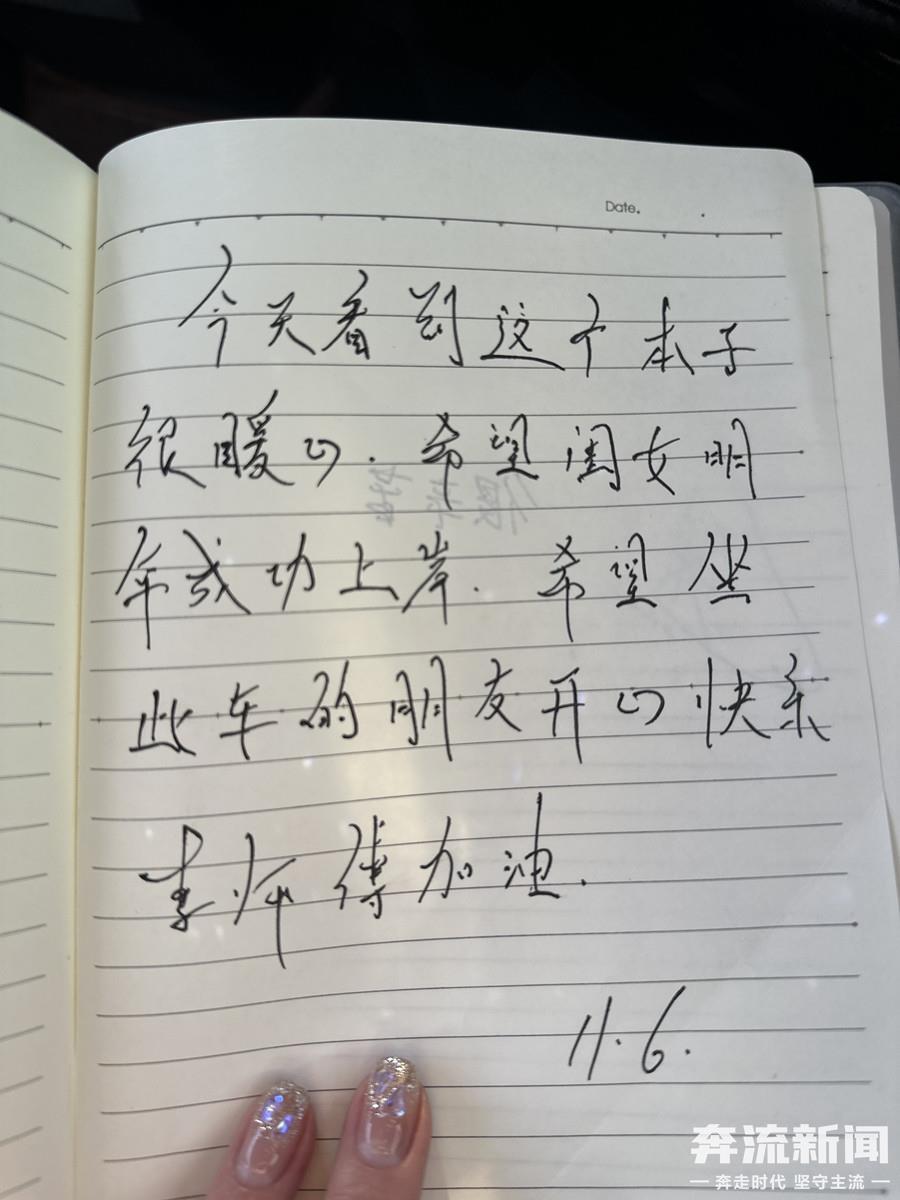 Date.
今天看到这个本子
很暖心.希望闺女明
年成功上岸.希望坐
此车的朋友开心快乐
李师傅加油.
11.6.
奔流新闻
奔走时代 坚守主流